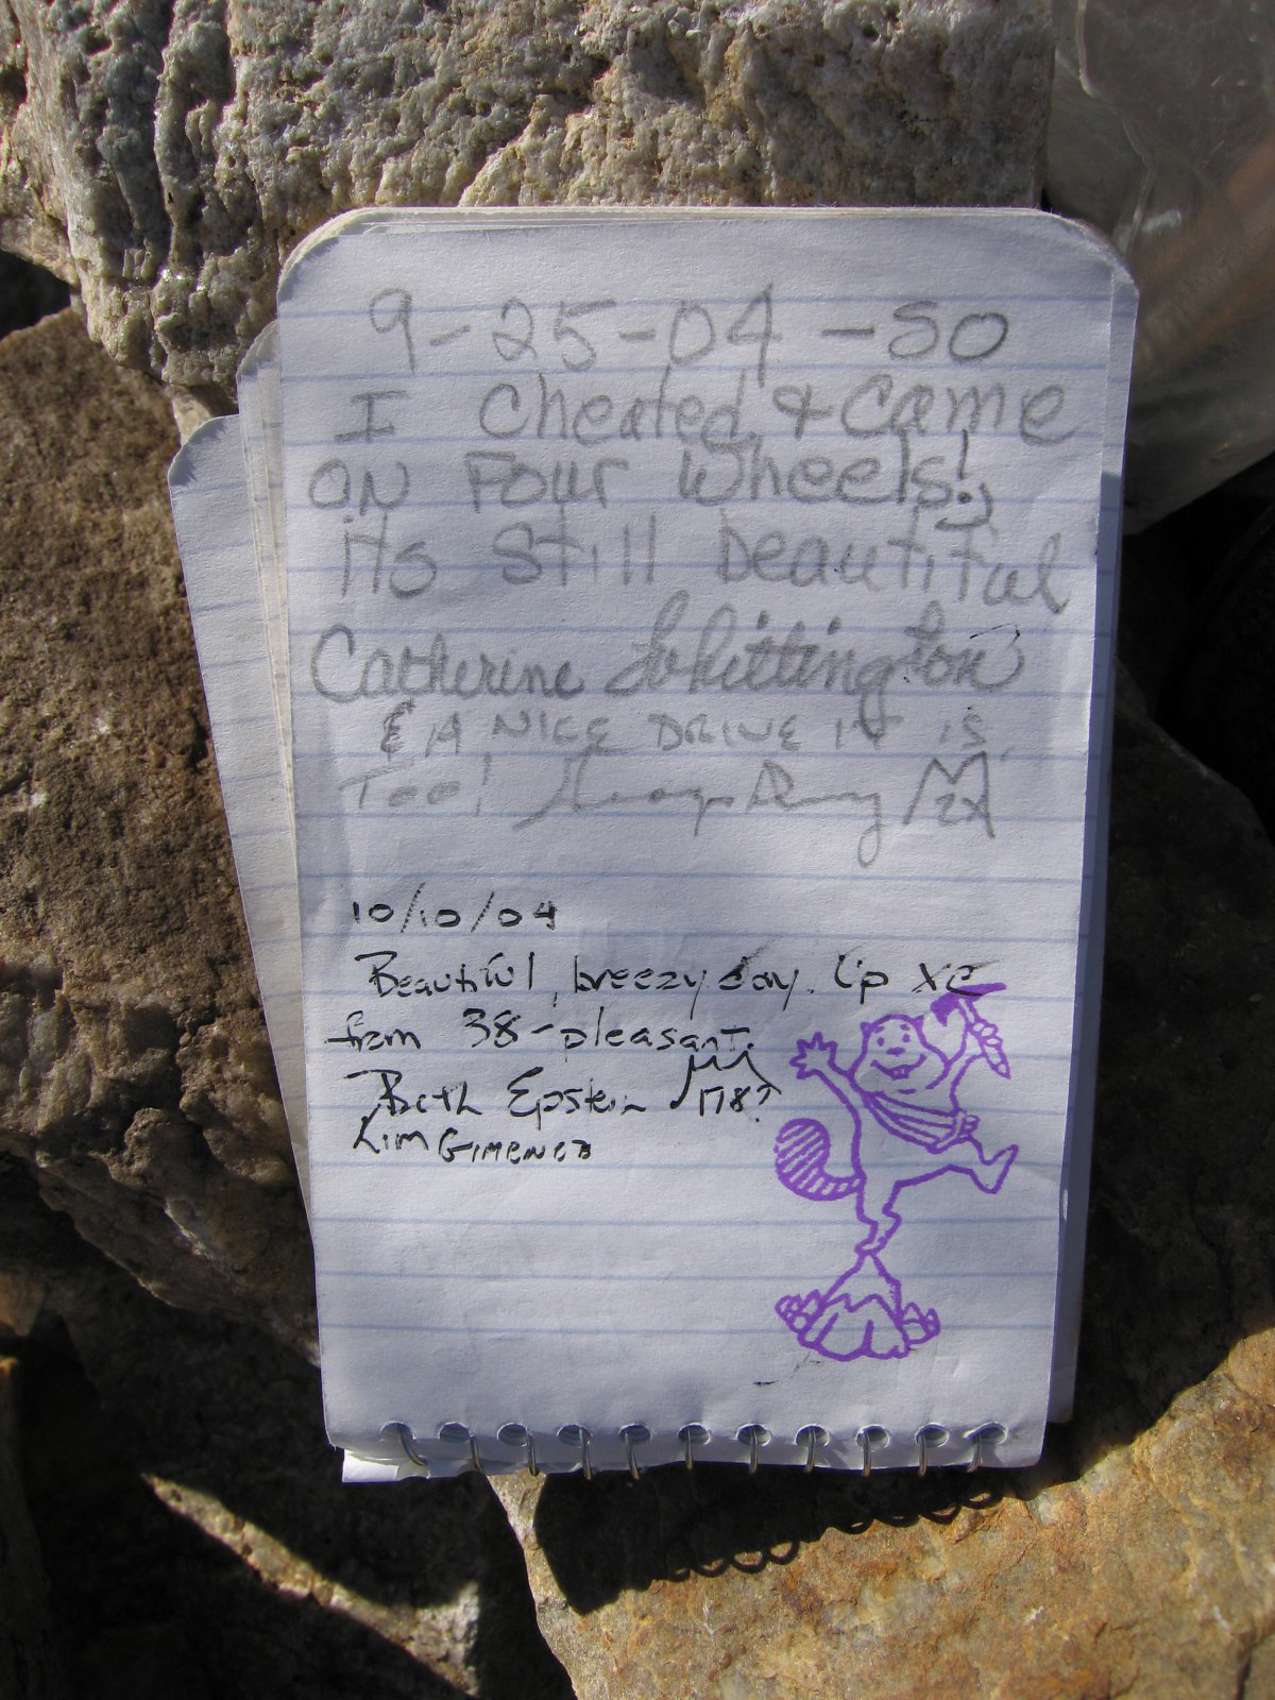 9-25-04 - SO
I Cheated & Came
ON Four Wheels!
its Still beautiful
Catherine Whittington
& A NICE DRIVE IT IS
Too!
10/10/04
Beautiful, breezy day. Up XC
from 38 - pleasant.
Beth Epstein 1787
Kim GIMENEZ